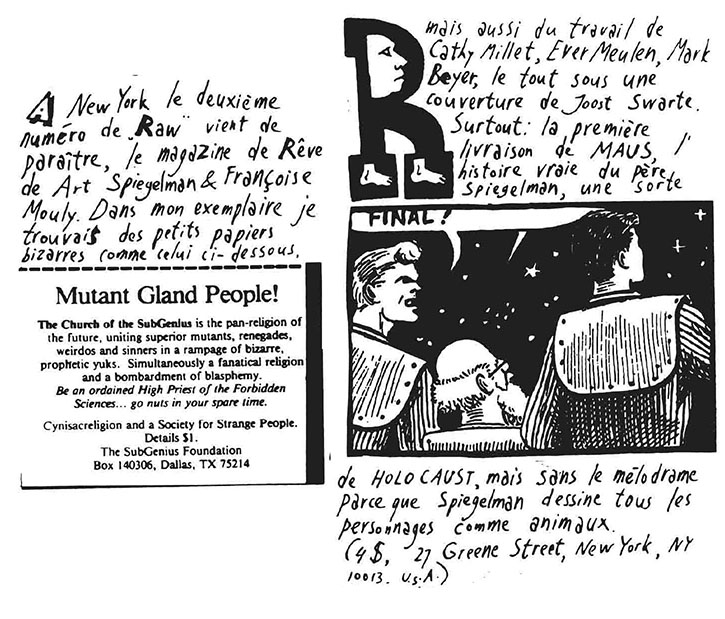 A New York le deuxième
numéro de "Raw" vient de
paraître, le magazine de Rêve
de Art Spiegelman & Françoise
Mouly. Dans mon exemplaire je
trouvais des petits papiers
bizarres comme celui ci-dessous.
Mutant Gland People!
The Church of the SubGenius is the pan-religion of
the future, uniting superior mutants, renegades,
weirdos and sinners in a rampage of bizarre,
prophetic yuks. Simultaneously a fanatical religion
and a bombardment of blasphemy.
Be an ordained High Priest of the Forbidden
Sciences... go nuts in your spare time.
Cynisacreligion and a Society for Strange People.
Details $1.
The SubGenius Foundation
Box 140306, Dallas, TX 75214
R
mais aussi du travail de
Cathy Millet, Ever Meulen, Mark
Beyer, le tout sous une
couverture de Joost Swarte.
Surtout: la première
livraison de MAUS, l'
histoire vraie du père
Spiegelman, une sorte
FINAL!
de HOLOCAUST, mais sans le mélodrame
parce que Spiegelman dessine tous les
personnages comme animaux.
(4$, 27 Greene Street, New York, NY
10013. U.S.A.)